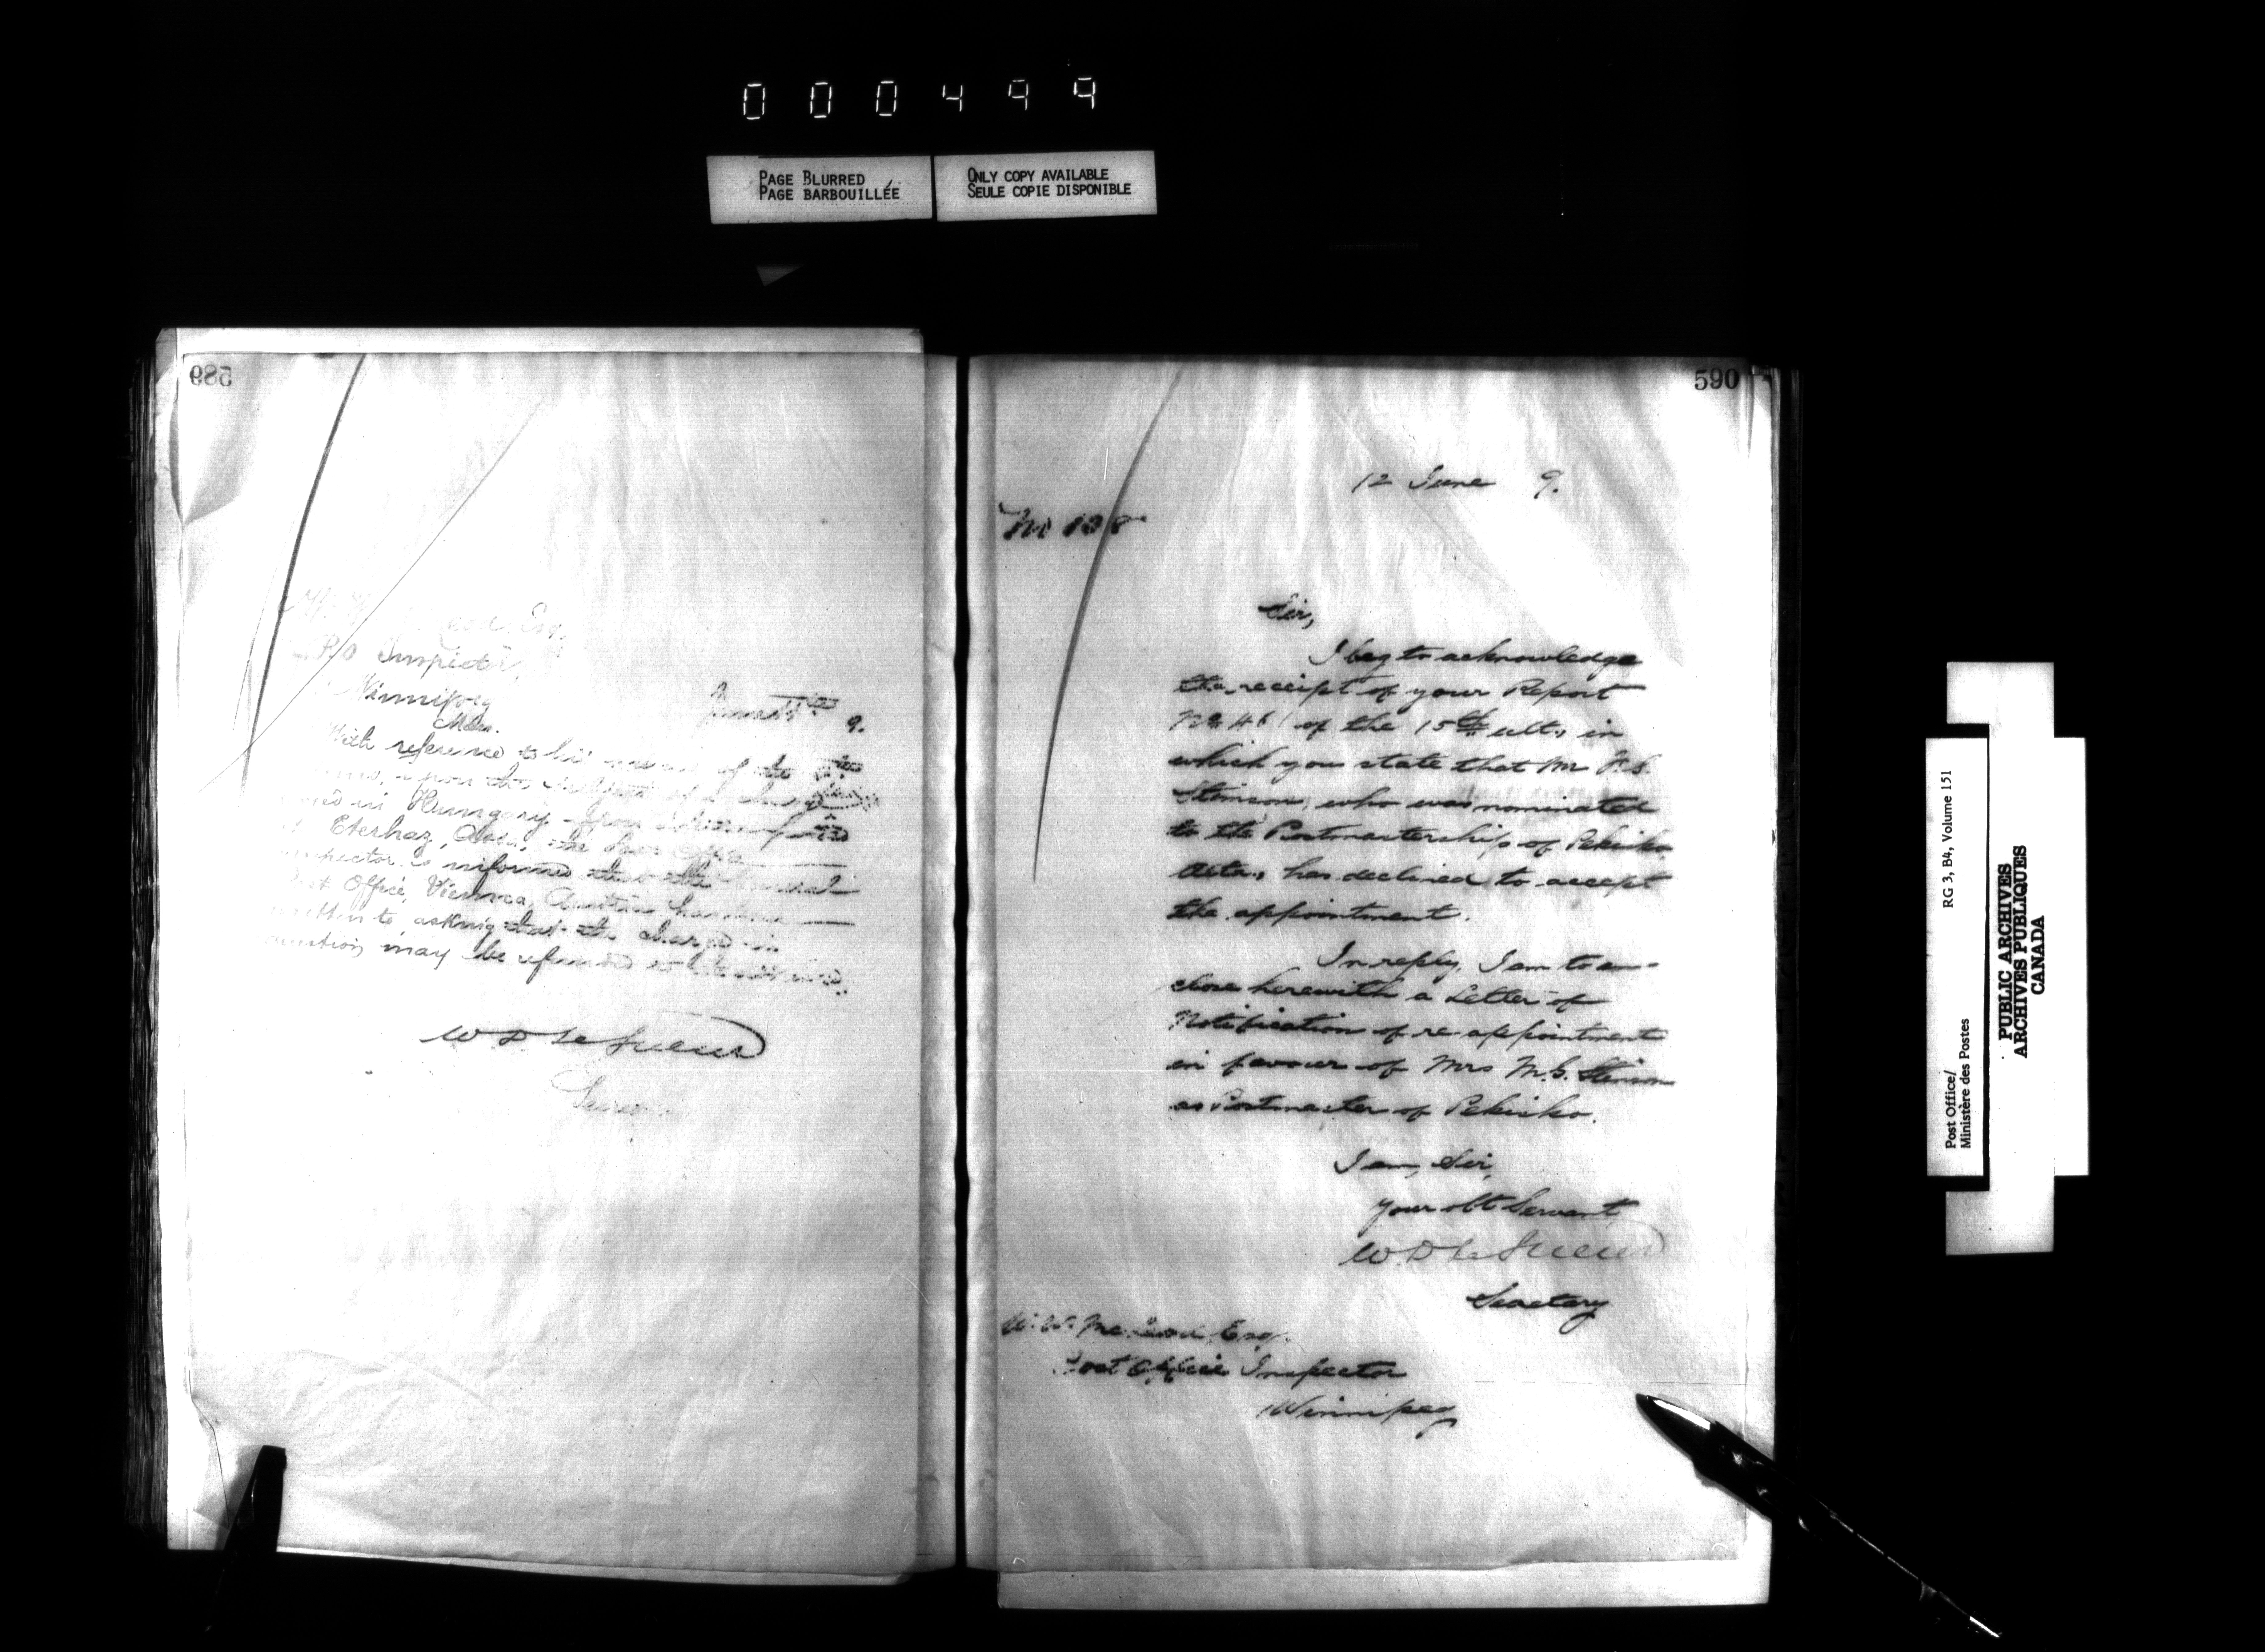 000499
PAGE BLURRED
PAGE BARBOUILLÉE
ONLY COPY AVAILABLE
SEULE COPIE DISPONIBLE
589
Esq.
P.O Inspector,
Winnipeg
Man.
9.
With reference to his of the
upon the subject of a charge
in Hungary
Eterhaz, Assa, the Post Office
Inspector is informed that the General
Post Office, Vienna, Austria has been
written to asking that the charge in
question may be refunded
W D LeSueur
Secretary
590
12 June 9.
Sir,
I beg to acknowledge
the receipt of your Report
No. 461 of the 15th ult., in
which you state that Mr
Stimson, who was nominated
to the Postmastership of Pekisko
Alta., has declined to accept
the appointment.
In reply, I am to en-
close herewith a Letter of
Notification of re-appointment
in favour of Mrs M.G. Stimson
as Postmaster of Pekisko.
I am, Sir,
Your obt Servant
W.D LeSueur
Secretary
W. W. McLeod, Esq.
Post Office Inspector
Winnipeg
Post Office/
Ministère des Postes
RG 3, B4, Volume 151
PUBLIC ARCHIVES
ARCHIVES PUBLIQUES
CANADA